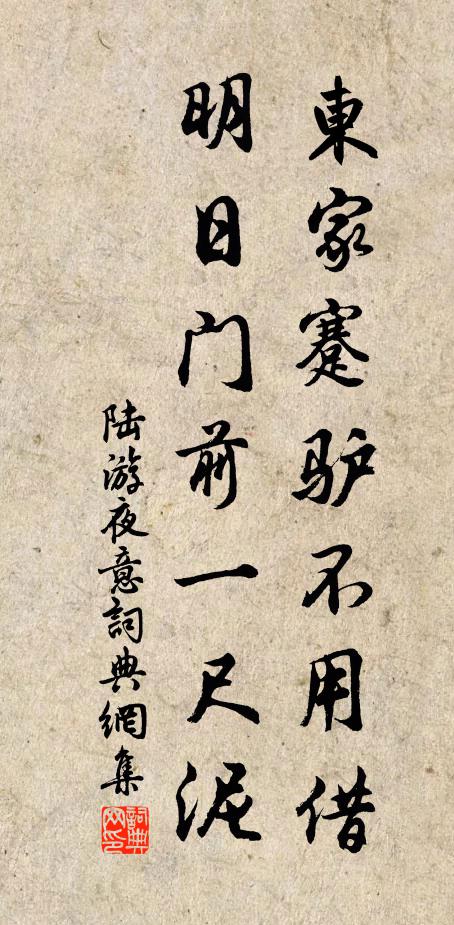 東家蹇驴不用借
明日门前一尺泥
陆游夜意詞典網集
詞典网印